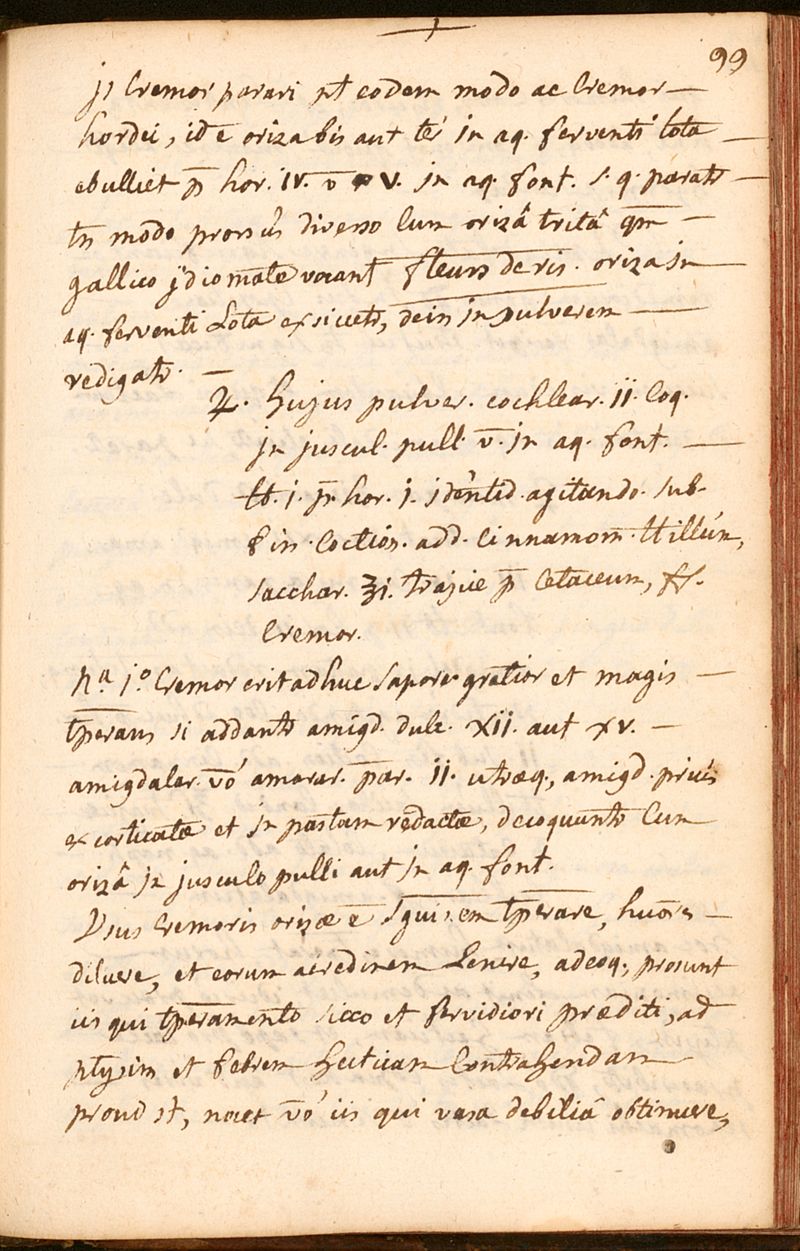 99
js Cremor parari pt eodem modo ac Cremor
hordei, id ē oriza bis aut ter in aq. ferventi lota
ebulliet p̄ hor. IV. v̄ V. in aq. font. s. q. paratr
tn̄ modo prorsùs diverso Cum orizâ tritâ qm̄
gallico jdiomate vocant fleurs de ris. oriza in
aq. ferventi Lota exsiccetr, dein in pulverem
redigatr.
♃. hujus pulver. cochlear. II. Coq.
in juscul. pull. v̄. in aq. font.
lb. j. pr. hor. j. jdentid. agitando. sub
fin. Coction. add. Cinnamom. ttillum,
sacchar. ℥j. trajice p̄ Cetaceum, ff.
Cremor.
Na. 1o. Cremor erit adhuc sapore gratior et magis
tperans si addantr amigd. dulc. XII. aut XV.
amigdalar. vō amarar. par. II. utræq, amigd. priùs
excorticatæ et in pastam redactæ, decoquantr Cum
orizâ in jusculo pulli aut in aq. font.
Usus Cremoris orizæ ē sguinem tperare, huōres
diluere, et eorum acredinem Lenire, adeoq, prosunt
iis qui tperamento sicco et fervidiori præditi, ad
ptysim et febrem hecticam Contrahendam
proni st, nocet vō iis qui vasa debilia obtinuere,